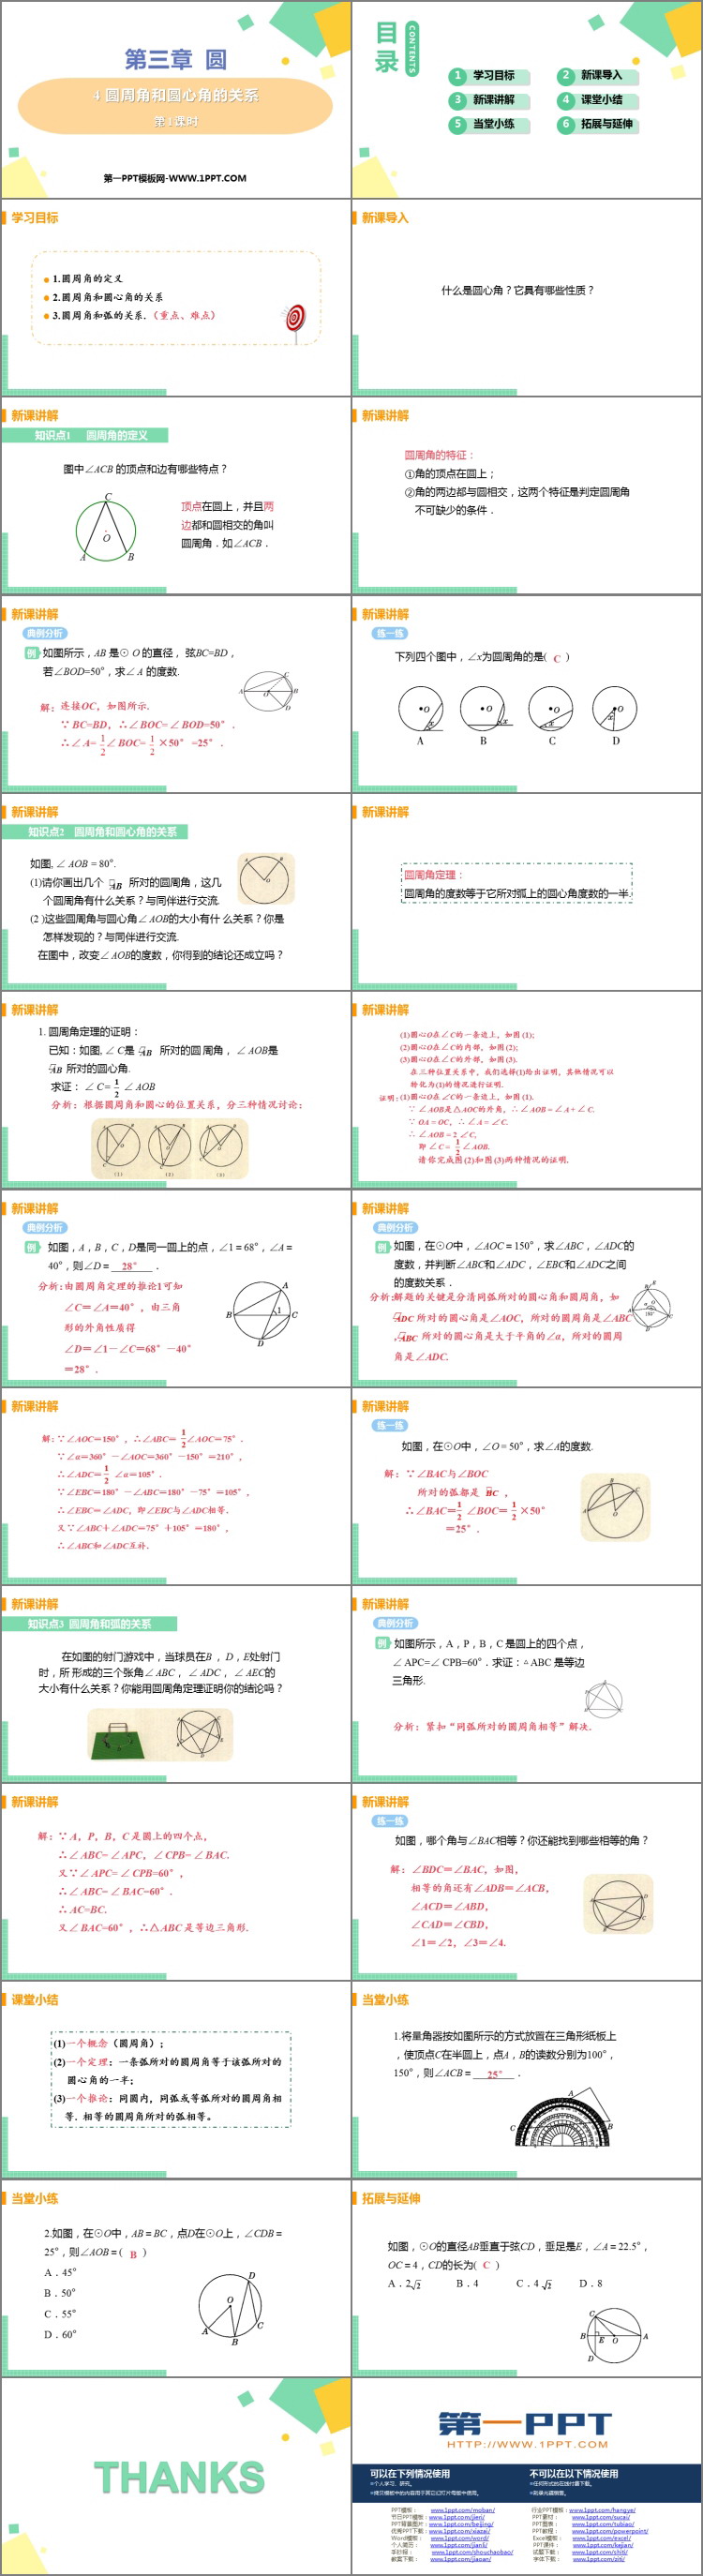 第三章 圆
4 圆周角和圆心角的关系
第1课时
第一PPT模板网-WWW.1PPT.COM
目录
CONTENTS
1 学习目标
2 新课导入
3 新课讲解
4 课堂小结
5 当堂小练
6 拓展与延伸
学习目标
1.圆周角的定义
2.圆周角和圆心角的关系
3.圆周角和弧的关系.（重点、难点）
新课导入
什么是圆心角？它具有哪些性质？
新课讲解
知识点1 圆周角的定义
图中∠ACB 的顶点和边有哪些特点？
C
O
A B
顶点在圆上，并且两
边都和圆相交的角叫
圆周角．如∠ACB．
新课讲解
圆周角的特征：
①角的顶点在圆上；
②角的两边都与圆相交，这两个特征是判定圆周角
不可缺少的条件．
新课讲解
典例分析
例 如图所示，AB 是⊙ O 的直径， 弦BC=BD，
若∠BOD=50°，求∠ A 的度数.
解：连接OC，如图所示.
∵ BC=BD，∴∠ BOC=∠ BOD=50°．
∴∠ A= 1/2 ∠ BOC= 1/2 ×50° =25°．
新课讲解
练一练
下列四个图中，∠x为圆周角的是( C )
A B C D
新课讲解
知识点2 圆周角和圆心角的关系
如图，∠ AOB = 80°.
(1)请你画出几个 AB 所对的圆周角，这几
个圆周角有什么关系？与同伴进行交流.
(2 )这些圆周角与圆心角∠ AOB的大小有什 么关系？你是
怎样发现的？与同伴进行交流.
在图中，改变∠ AOB的度数，你得到的结论还成立吗？
新课讲解
圆周角定理：
圆周角的度数等于它所对弧上的圆心角度数的一半.
新课讲解
1. 圆周角定理的证明：
已知：如图，∠ C是 AB 所对的圆 周角， ∠ AOB是
AB 所对的圆心角.
求证： ∠ C = 1/2 ∠ AOB
分析：根据圆周角和圆心的位置关系，分三种情况讨论：
(1) (2) (3)
新课讲解
(1)圆心O在∠C的一条边上，如图(1);
(2)圆心O在∠C的内部，如图(2);
(3)圆心O在∠C的外部，如图(3).
在三种位置关系中，我们选择(1)给出证明，其他情况可以
转化为(1)的情况进行证明.
证明：(1)圆心O在∠C的一条边上，如图(1).
∵ ∠ AOB是△AOC的外角，∴∠ AOB =∠ A +∠ C.
∵ OA = OC，∴∠ A =∠ C.
∴ ∠ AOB = 2 ∠ C,
即∠ C = 1/2 ∠ AOB.
请你完成图(2)和图(3)两种情况的证明.
新课讲解
典例分析
例 如图，A，B，C，D是同一圆上的点，∠1＝68°，∠A＝
40°，则∠D＝ 28° ．
分析：由圆周角定理的推论1可知
∠C＝∠A＝40°，由三角
形的外角性质得
∠D＝∠1－∠C＝68°－40°
＝28°．
新课讲解
典例分析
例 如图，在⊙O中，∠AOC＝150°，求∠ABC，∠ADC的
度数，并判断∠ABC和∠ADC，∠EBC和∠ADC之间
的度数关系．
分析：解题的关键是分清同弧所对的圆心角和圆周角，如
ADC 所对的圆心角是∠AOC，所对的圆周角是∠ABC
，ABC 所对的圆心角是大于平角的∠α，所对的圆周
角是∠ADC.
新课讲解
解：∵∠AOC＝150°，∴∠ABC＝ 1/2 ∠AOC＝75°．
∵∠α＝360°－∠AOC＝360°－150°＝210°，
∴∠ADC＝ 1/2 ∠α＝105°．
∵∠EBC＝180°－∠ABC＝180°－75°＝105°，
∴∠EBC＝∠ADC，即∠EBC与∠ADC相等．
又∵∠ABC＋∠ADC＝75°＋105°＝180°，
∴∠ABC和∠ADC互补．
新课讲解
练一练
如图，在⊙O中，∠O = 50°，求∠A的度数.
解：∵∠BAC与∠BOC
所对的弧都是 BC ，
∴∠BAC＝ 1/2 ∠BOC＝ 1/2 ×50°
＝25°．
新课讲解
知识点3 圆周角和弧的关系
在如图的射门游戏中，当球员在B ，D，E处射门
时，所 形成的三个张角∠ ABC， ∠ ADC， ∠ AEC的
大小有什么关系？你能用圆周角定理证明你的结论吗？
新课讲解
典例分析
例 如图所示，A，P，B，C 是圆上的四个点，
∠ APC=∠ CPB=60°．求证：△ ABC 是等边
三角形.
分析：紧扣“同弧所对的圆周角相等”解决.
新课讲解
解：∵ A，P，B，C 是圆上的四个点，
∴∠ ABC=∠ APC，∠ CPB=∠ BAC.
又∵∠ APC=∠ CPB=60°，
∴∠ ABC=∠ BAC=60°．
∴ AC=BC.
又∠ BAC=60°，∴△ ABC 是等边三角形.
新课讲解
练一练
如图，哪个角与∠BAC相等？你还能找到哪些相等的角？
解：∠BDC＝∠BAC，如图，
相等的角还有∠ADB＝∠ACB，
∠ACD＝∠ABD，
∠CAD＝∠CBD，
∠1＝∠2，∠3＝∠4.
课堂小结
(1)一个概念（圆周角）；
(2)一个定理：一条弧所对的圆周角等于该弧所对的
圆心角的一半；
(3)一个推论：同圆内，同弧或等弧所对的圆周角相
等．相等的圆周角所对的弧相等。
当堂小练
1.将量角器按如图所示的方式放置在三角形纸板上
，使顶点C在半圆上，点A，B的读数分别为100°，
150°，则∠ACB＝ 25° ．
当堂小练
2.如图，在⊙O中，AB＝BC，点D在⊙O上，∠CDB＝
25°，则∠AOB＝( B )
A．45°
B．50°
C．55°
D．60°
拓展与延伸
如图，⊙O的直径AB垂直于弦CD，垂足是E，∠A＝22.5°，
OC＝4，CD的长为( C )
A．2√2 B．4 C．4√2 D．8
THANKS
第一PPT
HTTP://WWW.1PPT.COM
可以在下列情况使用
不可以在以下情况使用
PPT模板： www.1ppt.com/moban/
行业PPT模板：www.1ppt.com/hangye/
节日PPT模板：www.1ppt.com/jieri/
PPT素材： www.1ppt.com/sucai/
PPT背景图片：www.1ppt.com/beijing/
PPT图表： www.1ppt.com/tubiao/
优秀PPT下载：www.1ppt.com/xiazai/
PPT教程： www.1ppt.com/powerpoint/
Word模板： www.1ppt.com/word/
Excel模板： www.1ppt.com/excel/
个人简历： www.1ppt.com/jianli/
PPT课件： www.1ppt.com/kejian/
手抄报： www.1ppt.com/shouchaobao/
试题下载： www.1ppt.com/shiti/
教案下载： www.1ppt.com/jiaoan/
字体下载： www.1ppt.com/ziti/